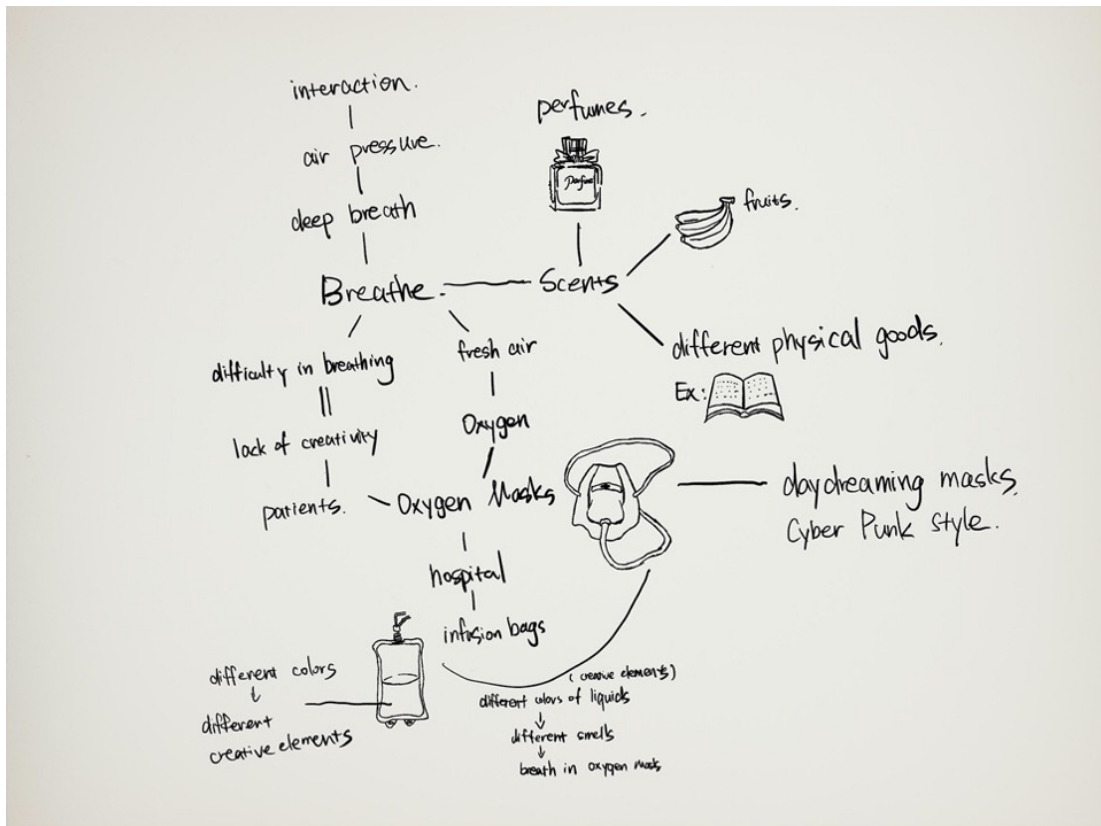 interaction.
air pressure.
deep breath
Breathe.
perfumes.
Perfume
fruits.
Scents
different physical goods.
Ex:
difficulty in breathing
lack of creativity
patients.
fresh air
Oxygen
Oxygen Masks
daydreaming masks.
Cyber Punk style.
hospital
infusion bags
different colors
different
creative elements
(creative elements)
different colors of liquids
different smells
breath in oxygen mask